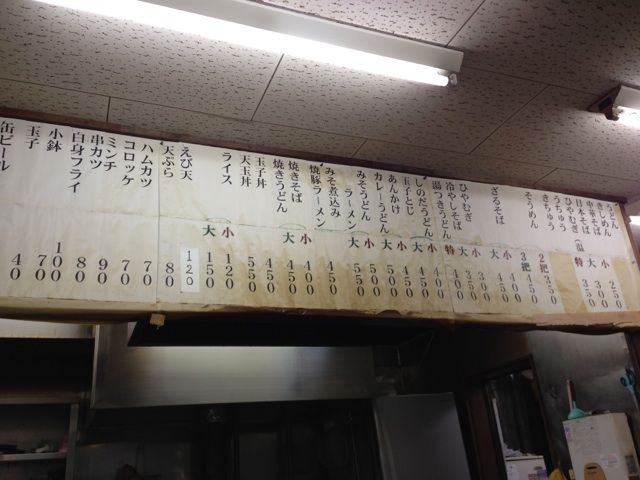 うどん
きしめん
中華そば
日本そば
ひやむぎ
うちゅう
きちゅう
小 250
大 300
特 350
そうめん
2把 350
3把 450
ざるそば
小 400
大 450
ひやむぎ
冷やしそば
小 300
大 350
特 400
湯つきうどん
400
しのだうどん
小 400
大 450
玉子とじ
あんかけ
カレーうどん
みそうどん
小 450
大 500
ラーメン
みそ煮込み
大 550
焼豚ラーメン
450
焼きそば
焼きうどん
小 400
大 450
玉子丼
天玉丼
450
550
ライス
小 120
大 150
えび天
120
天ぷら
80
ハムカツ
70
コロッケ
70
ミンチ
串カツ
90
白身フライ
80
小鉢
100
玉子
70
缶ビール
40